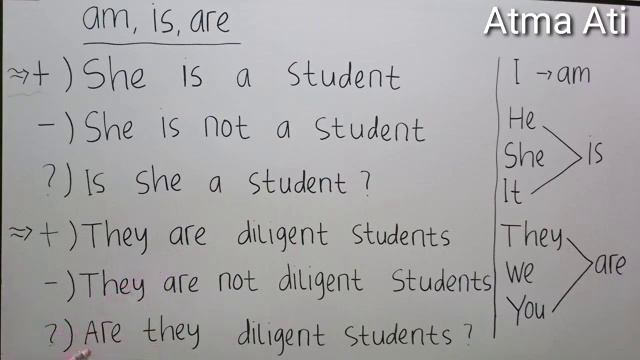 am, is, are
Atma Ati
≈> +) She is a student
-) She is not a student
?) Is she a student?
≈> +) They are diligent students
-) They are not diligent students
?) Are they diligent students?
I → am
He
She
It
is
They
We
You
are